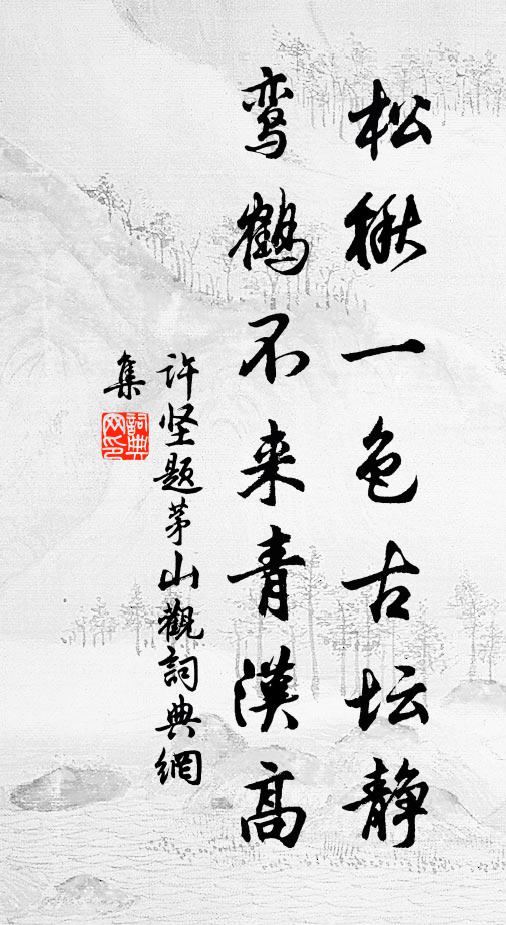 松楸一色古坛静
鸾鹤不来青漢高
许坚题茅山觀詞典網
集
詞典
网印